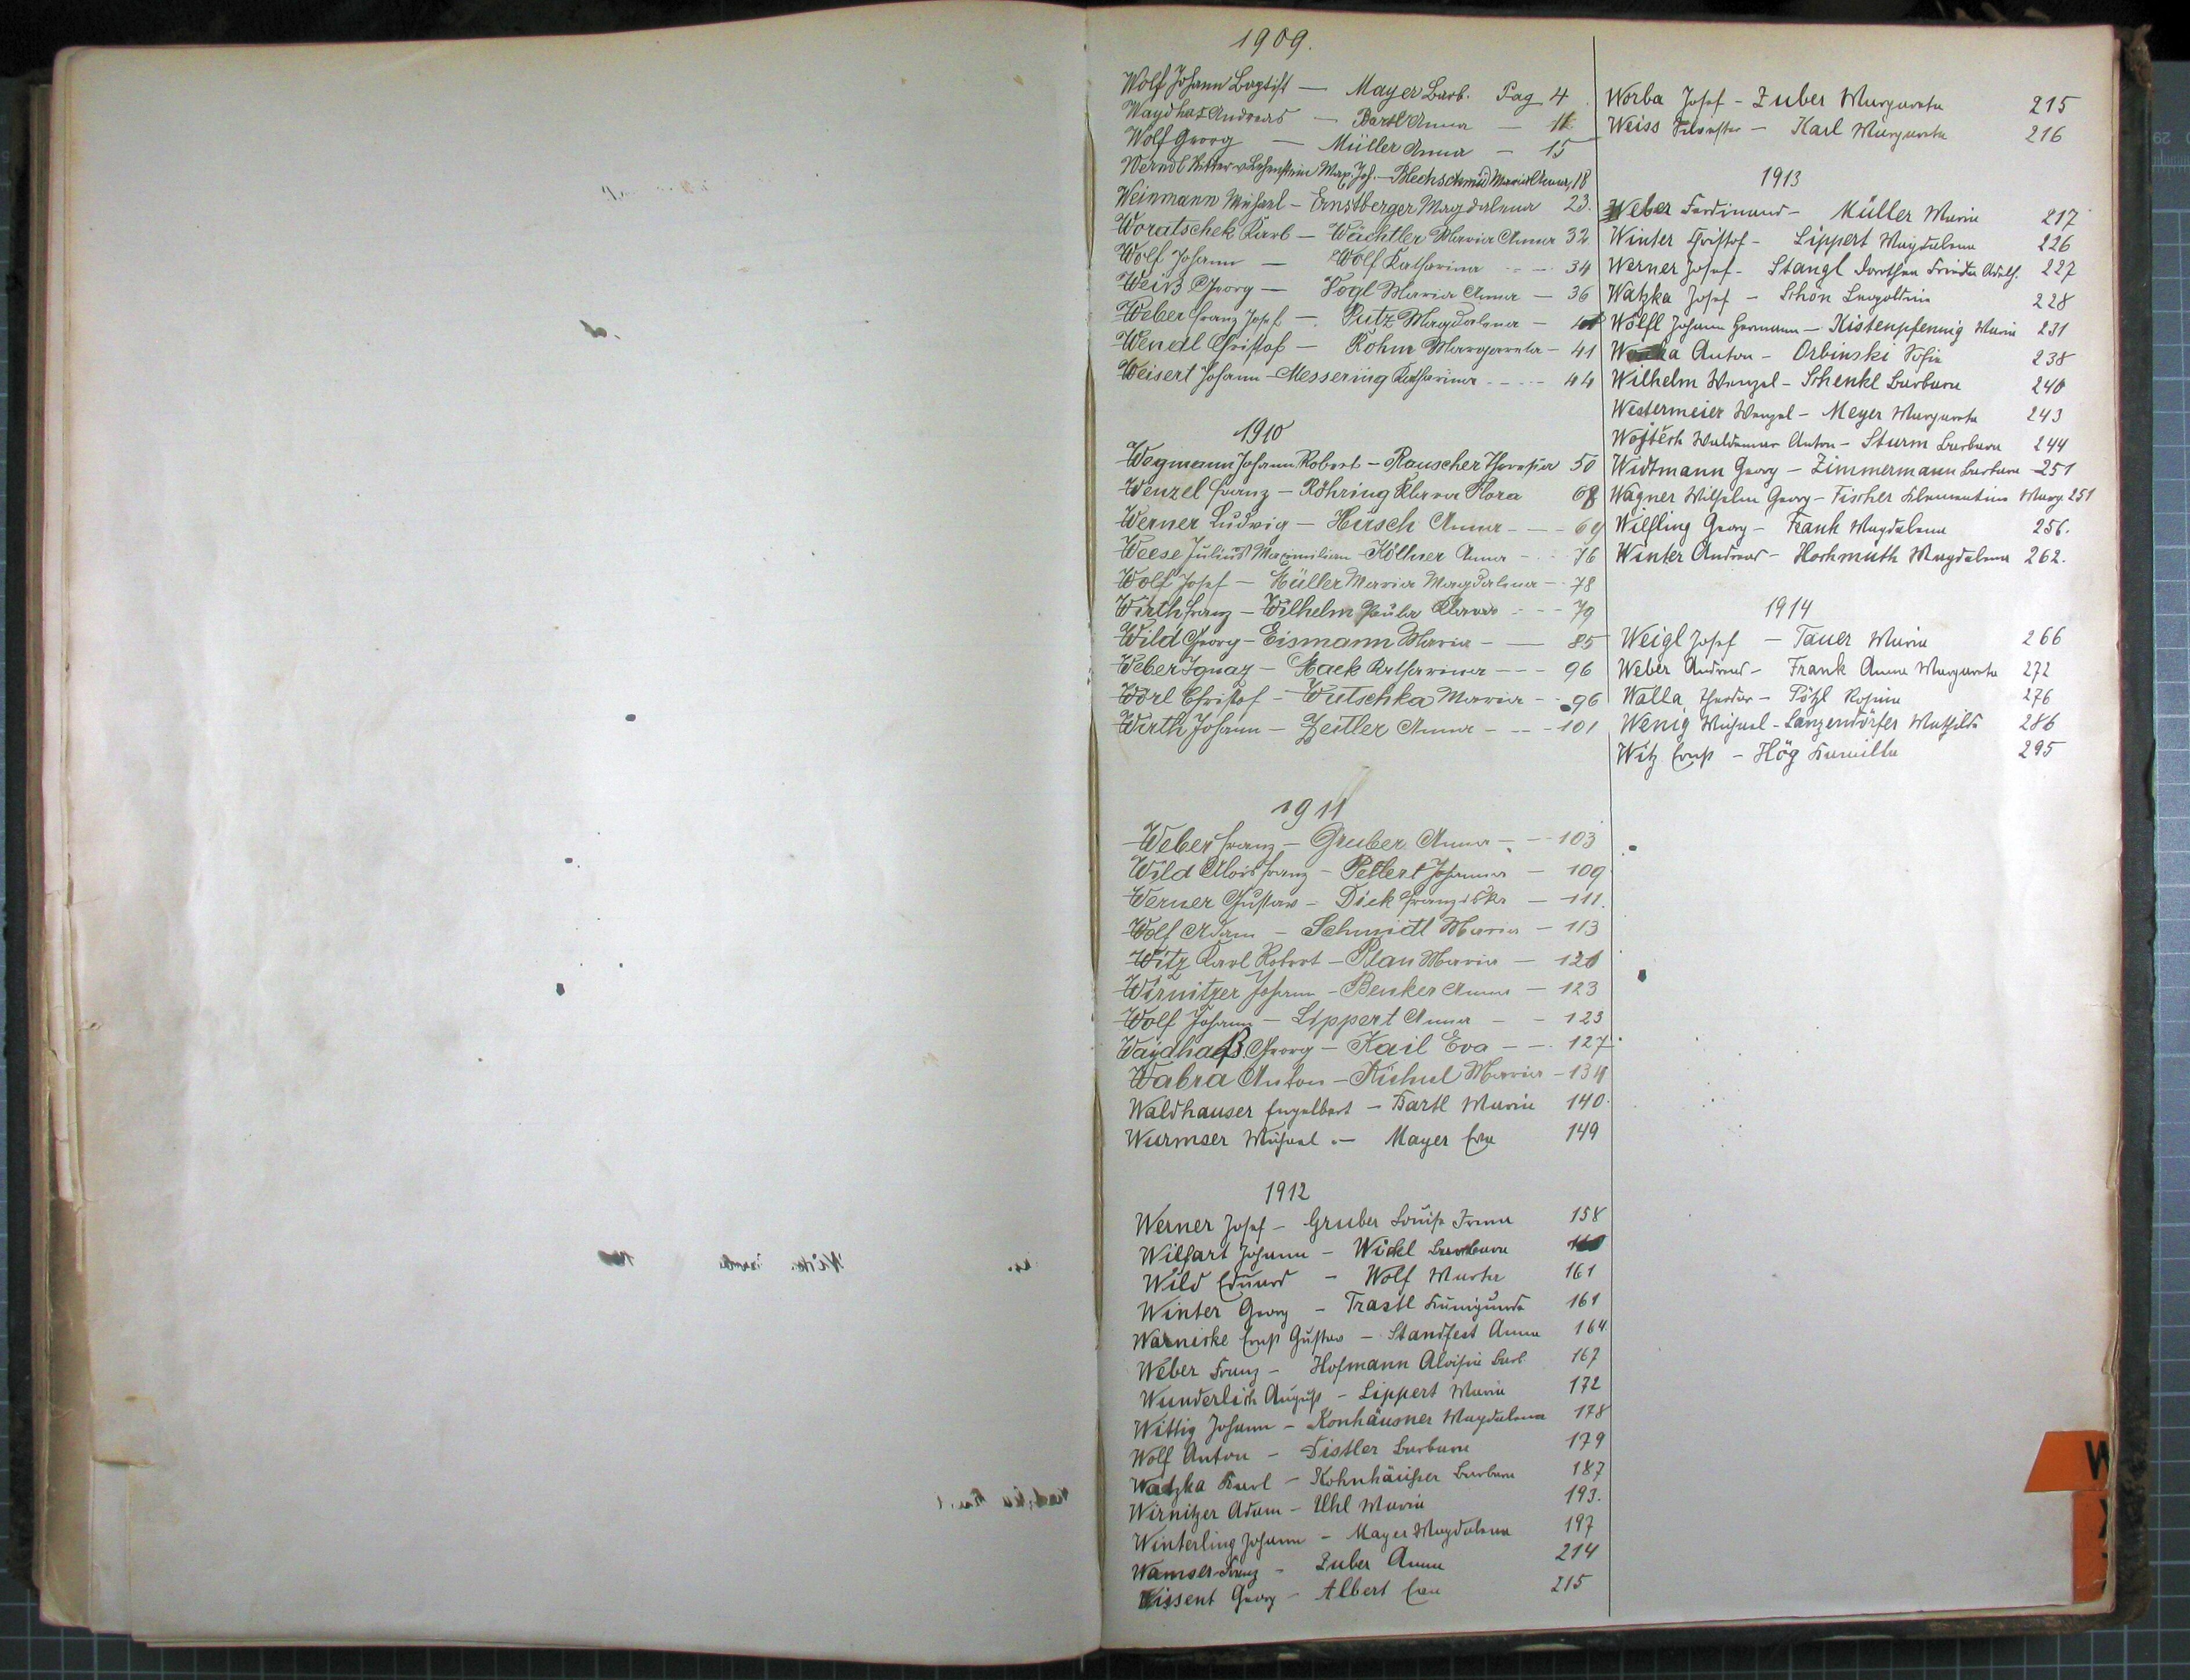 1909.
Wolf Johann Baptist — Mayer Barb. Pag 4
Waydhas Andreas — Bartl Anna — 11
Wolf Georg — Müller Anna — 15
Werndl Ritter v. Lehenstein Max. Jos. — Blechschmid Maria Anna, 18
Weinmann Michael — Ernstberger Magdalena 23.
Woratschek Karl — Wächtler Maria Anna 32.
Wolf Johann — Wolf Katharina - — 34
Weiß Georg — Vogl Maria Anna — 36
Weber Franz Josef — Putz Magdalena —
Wendl Christof — Rohm Margareta — 41
Weisert Johann — Messering Katharina - - - - 44
1910
Wegmann Johann Robert — Rauscher Theresia 50
Wenzel Franz — Röhring Klara Flora 68
Werner Ludwig — Hirsch Anna - — 69
Weese Julius Maximilian — Köllner Anna - - 76
Wolf Josef — Müller Maria Magdalena — 78
Wirth Franz — Wilhelm Paula Klara - - - 79
Wild Georg — Eismann Maria - — 85
Weber Ignaz — Mack Katharina - - - 96
Wörl Christof — Wutschka Maria - - 96
Wirth Johann — Zeitler Anna - - - 101
1911
Weber Franz — Gruber Anna - - - 103
Wild Alois Franz — Pellert Johanna — 109
Werner Gustav — Dick Franziska — 111.
Wolf Adam — Schmidl Maria — 113
Witz Karl Robert — Plan Maria — 120
Wirnitzer Johann — Benker Anna — 123
Wolf Johann — Lippert Anna - - 123
Waydhaß Georg — Kail Eva - - 127
Wabra Anton — Kühnl Maria — 134
Waldhauser Engelbert — Bartl Maria 140.
Wurmser Michael — Mayer Eva 149
1912
Werner Josef — Gruber Louise Irma 158
Wilfart Johann — Wickl Barbara 160
Wild Eduard — Wolf Marta 161
Winter Georg — Trastl Kunigunde 161
Warnicke Ernst Gustav — Standfest Anna 164
Weber Franz — Hofmann Aloisia Barb. 167
Wunderlich August — Lippert Maria 172
Wittig Johann — Konhäusner Magdalena 178
Wolf Anton — Distler Barbara 179
Watzka Karl — Kohnhäußer Barbara 187
Wirnitzer Adam — Uhl Maria 193.
Winterling Johann — Mayer Magdalena 197
Wamser Franz - Zuber Anna 214
Wissent Georg — Albert Eva 215
Worba Josef — Zuber Margareta 215
Weiss Silvester — Karl Margareta 216
1913
Weber Ferdinand — Müller Maria 217
Winter Christof — Lippert Magdalena 226
Werner Josef — Stangl Dorothea Frieda Adelh. 227
Watzka Josef — Schön Leopoldine 228
Wölfl Johann Hermann — Kistenpfennig Maria 231
Anton — Orbinski Sofie 238
Wilhelm Wenzel — Schenkl Barbara 240
Westermeier Wenzel — Meyer Margareta 243
Wojtěch Waldemar Anton — Sturm Barbara 244
Widtmann Georg — Zimmermann Barbara — 251
Wagner Wilhelm Georg — Fischer Klementine Marg. 251
Wilfling Georg — Frank Magdalena 256.
Winter Andreas — Hochmuth Magdalena 262.
1914
Weigl Josef — Tauer Maria 266
Weber Andreas — Frank Anna Margareta 272
Walla Theodor — Pötzl Rosina 276
Wenig Michael — Lanzendörfer Mathilde 286
Witz Ernst — Hög Kamilla 295
W